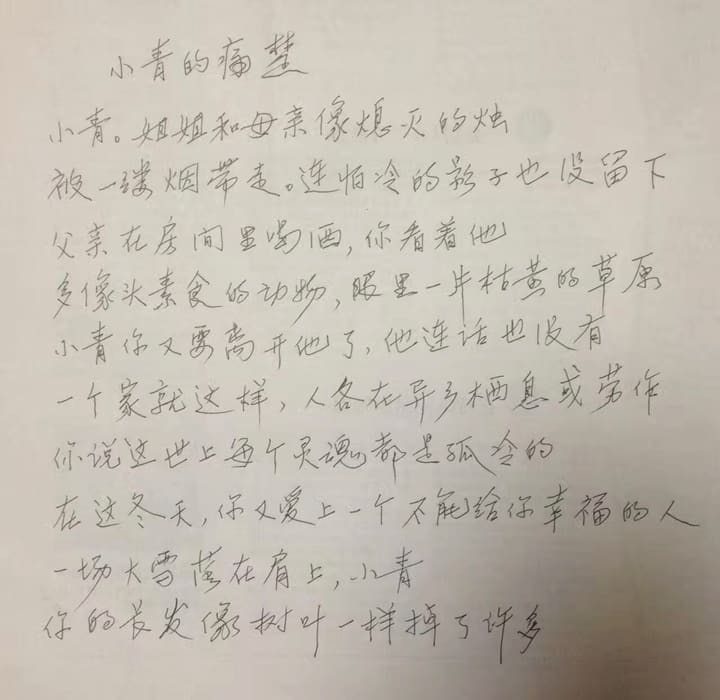 小青的痛楚
小青。姐姐和母亲像熄灭的烛
被一缕烟带走。连怕冷的影子也没留下
父亲在房间里喝酒，你看着他
多像头素食的动物，眼里一片枯黄的草原
小青你又要离开他了，他连话也没有
一个家就这样，人各在异乡栖息或劳作
你说这世上每个灵魂都是孤冷的
在这冬天，你又爱上一个不能给你幸福的人
一场大雪落在肩上，小青
你的长发像树叶一样掉了许多